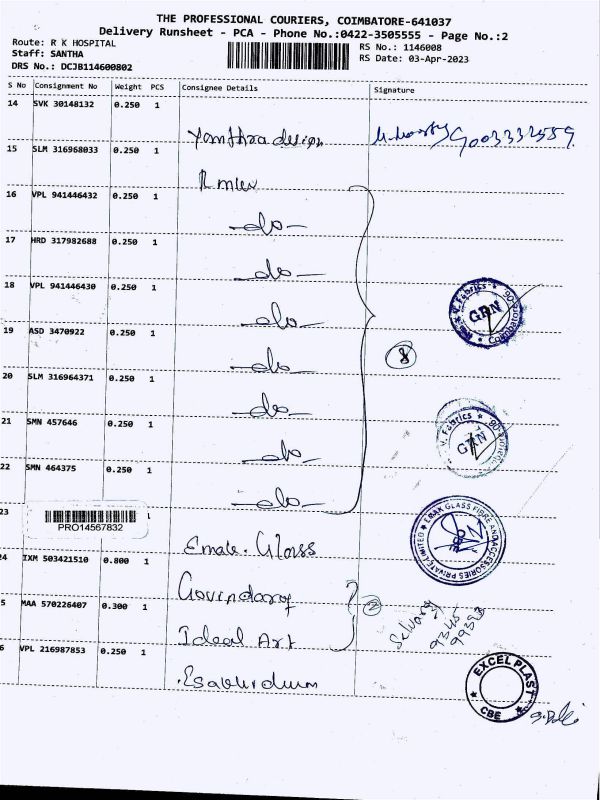 THE PROFESSIONAL COURIERS, COIMBATORE-641037
Delivery Runsheet - PCA - Phone No.:0422-3505555 - Page No.:2
Route: R K HOSPITAL
Staff: SANTHA
DRS No.: DCJB114600802
RS No.: 1146008
RS Date: 03-Apr-2023
S No Consignment No Weight PCS Consignee Details Signature
14 SVK 30148132 0.250 1
15 SLM 316968033 0.250 1
16 VPL 941446432 0.250 1
-do-
17 HRD 317982688 0.250 1
-do-
18 VPL 941446430 0.250 1
-do-
19 ASD 3470922 0.250 1
-do-
20 SLM 316964371 0.250 1
-do-
21 SMN 457646 0.250 1
-do-
22 SMN 464375 0.250 1
-do-
23
PRO14567832
Glass
24 IXM 503421510 0.800 1
Govindaraj
5 MAA 570226407 0.300 1
2
Ideal Art
6 VPL 216987853 0.250 1
V. Fabrics
GRN
Coimbatore
V. Fabrics
GRN
GLASS FIBRE AND ACCESSORIES PRIVATE LIMITED
Selvaraj
EXCEL PLAST
CBE